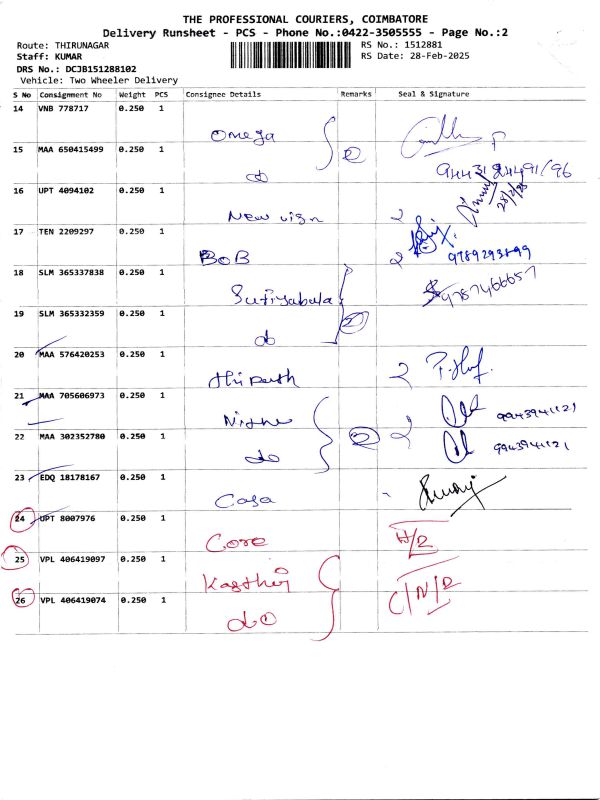 THE PROFESSIONAL COURIERS, COIMBATORE
Delivery Runsheet - PCS - Phone No.:0422-3505555 - Page No.:2
Route: THIRUNAGAR RS No.: 1512881
Staff: KUMAR RS Date: 28-Feb-2025
DRS No.: DCJB151288102
Vehicle: Two Wheeler Delivery
S No Consignment No Weight PCS Consignee Details Remarks Seal & Signature
14 VNB 778717 0.250 1
Omega
15 MAA 650415499 0.250 1 2
do
16 UPT 4094102 0.250 1
28/2/25
New vign 2
17 TEN 2209297 0.250 1
BOB 2 9789293899
18 SLM 365337838 0.250 1
Suriyabala 9787466657
19 SLM 365332359 0.250 1 2
do
20 MAA 576420253 0.250 1
2
21 MAA 705606973 0.250 1
9943941121
22 MAA 302352780 0.250 1 2 2
do 9943941121
23 EDQ 18178167 0.250 1
Casa
24 UPT 8007976 0.250 1
Core H/R
25 VPL 406419097 0.250 1
26 VPL 406419074 0.250 1 C/N/R
do